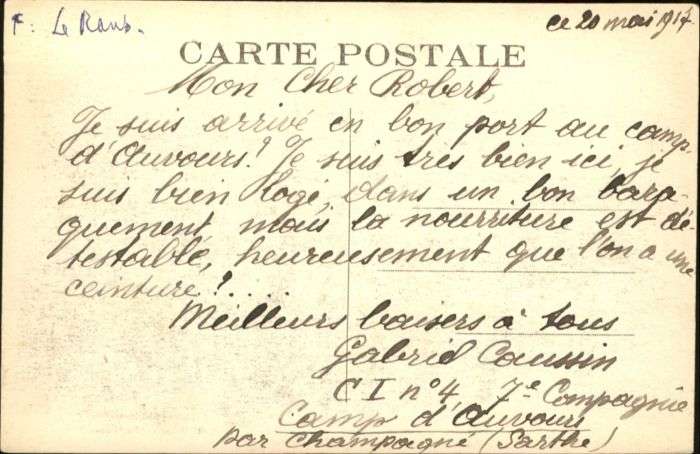 F. Le Rans.
ce 20 mai 1917
CARTE POSTALE
Mon Cher Robert,
Je suis arrivé en bon port au camp
d'Auvours! Je suis très bien ici, je
suis bien logé, dans un bon bara-
quement, mais la nourriture est dé-
testable, heureusement que l'on a une
ceinture!....
Meilleurs baisers à tous
Gabriel Caussin
C I n° 4 7e Compagnie
Camp d'Auvours
par Champagné (Sarthe)